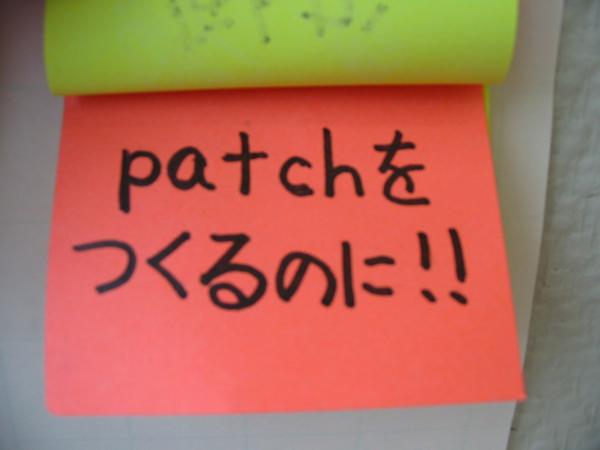 patchを
つくるのに!!